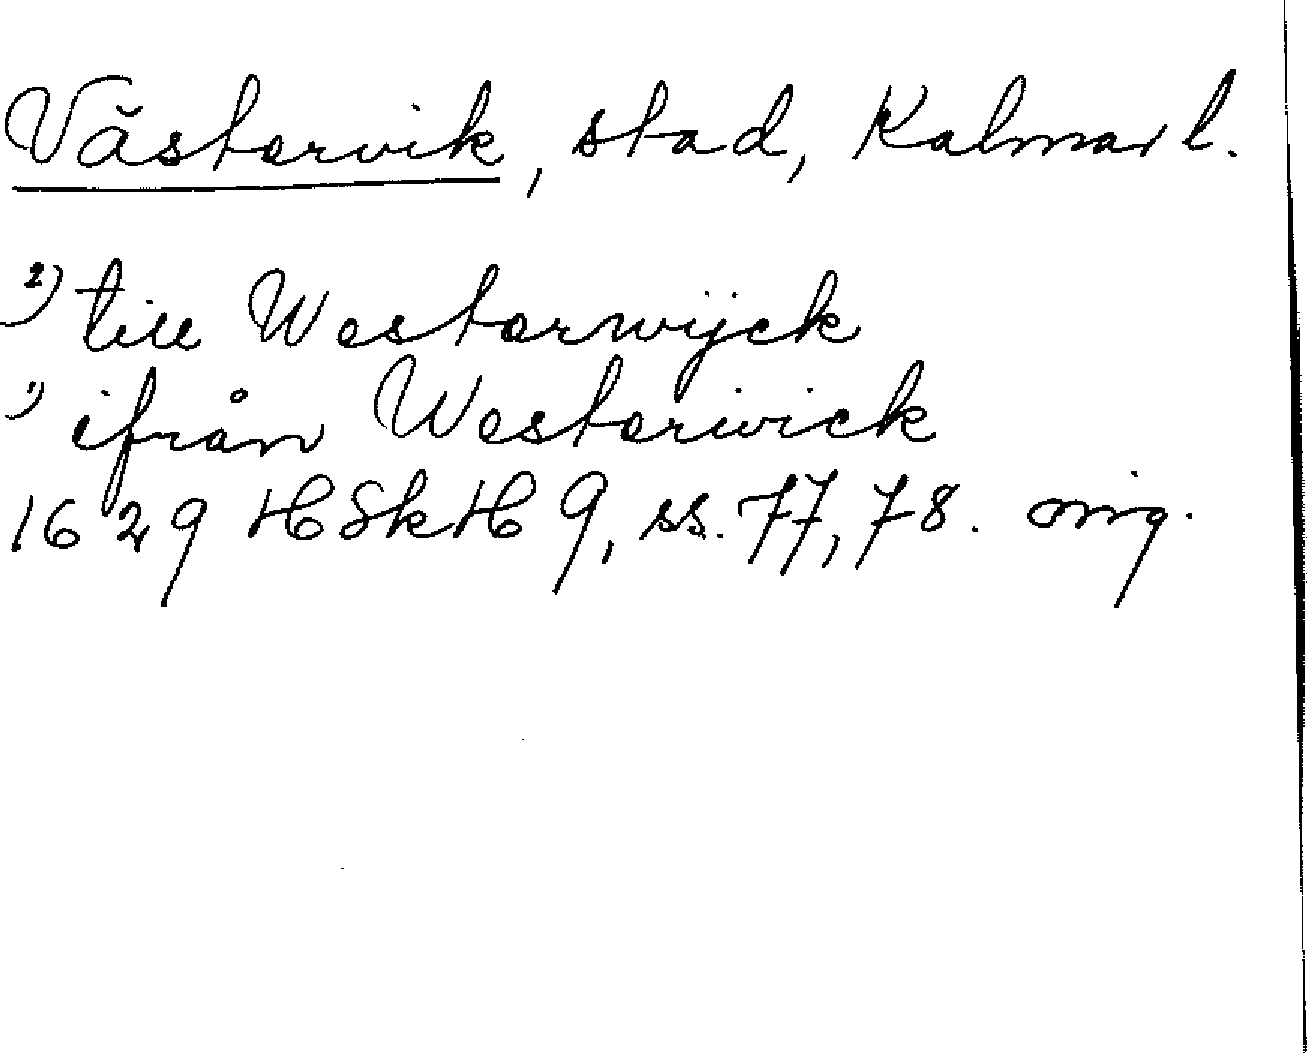 Västervik, stad, Kalmar l.
2) till Westerwijck
1) ifrån Westerwick
1629 HSkH 9, ss. 77, 78. orig.